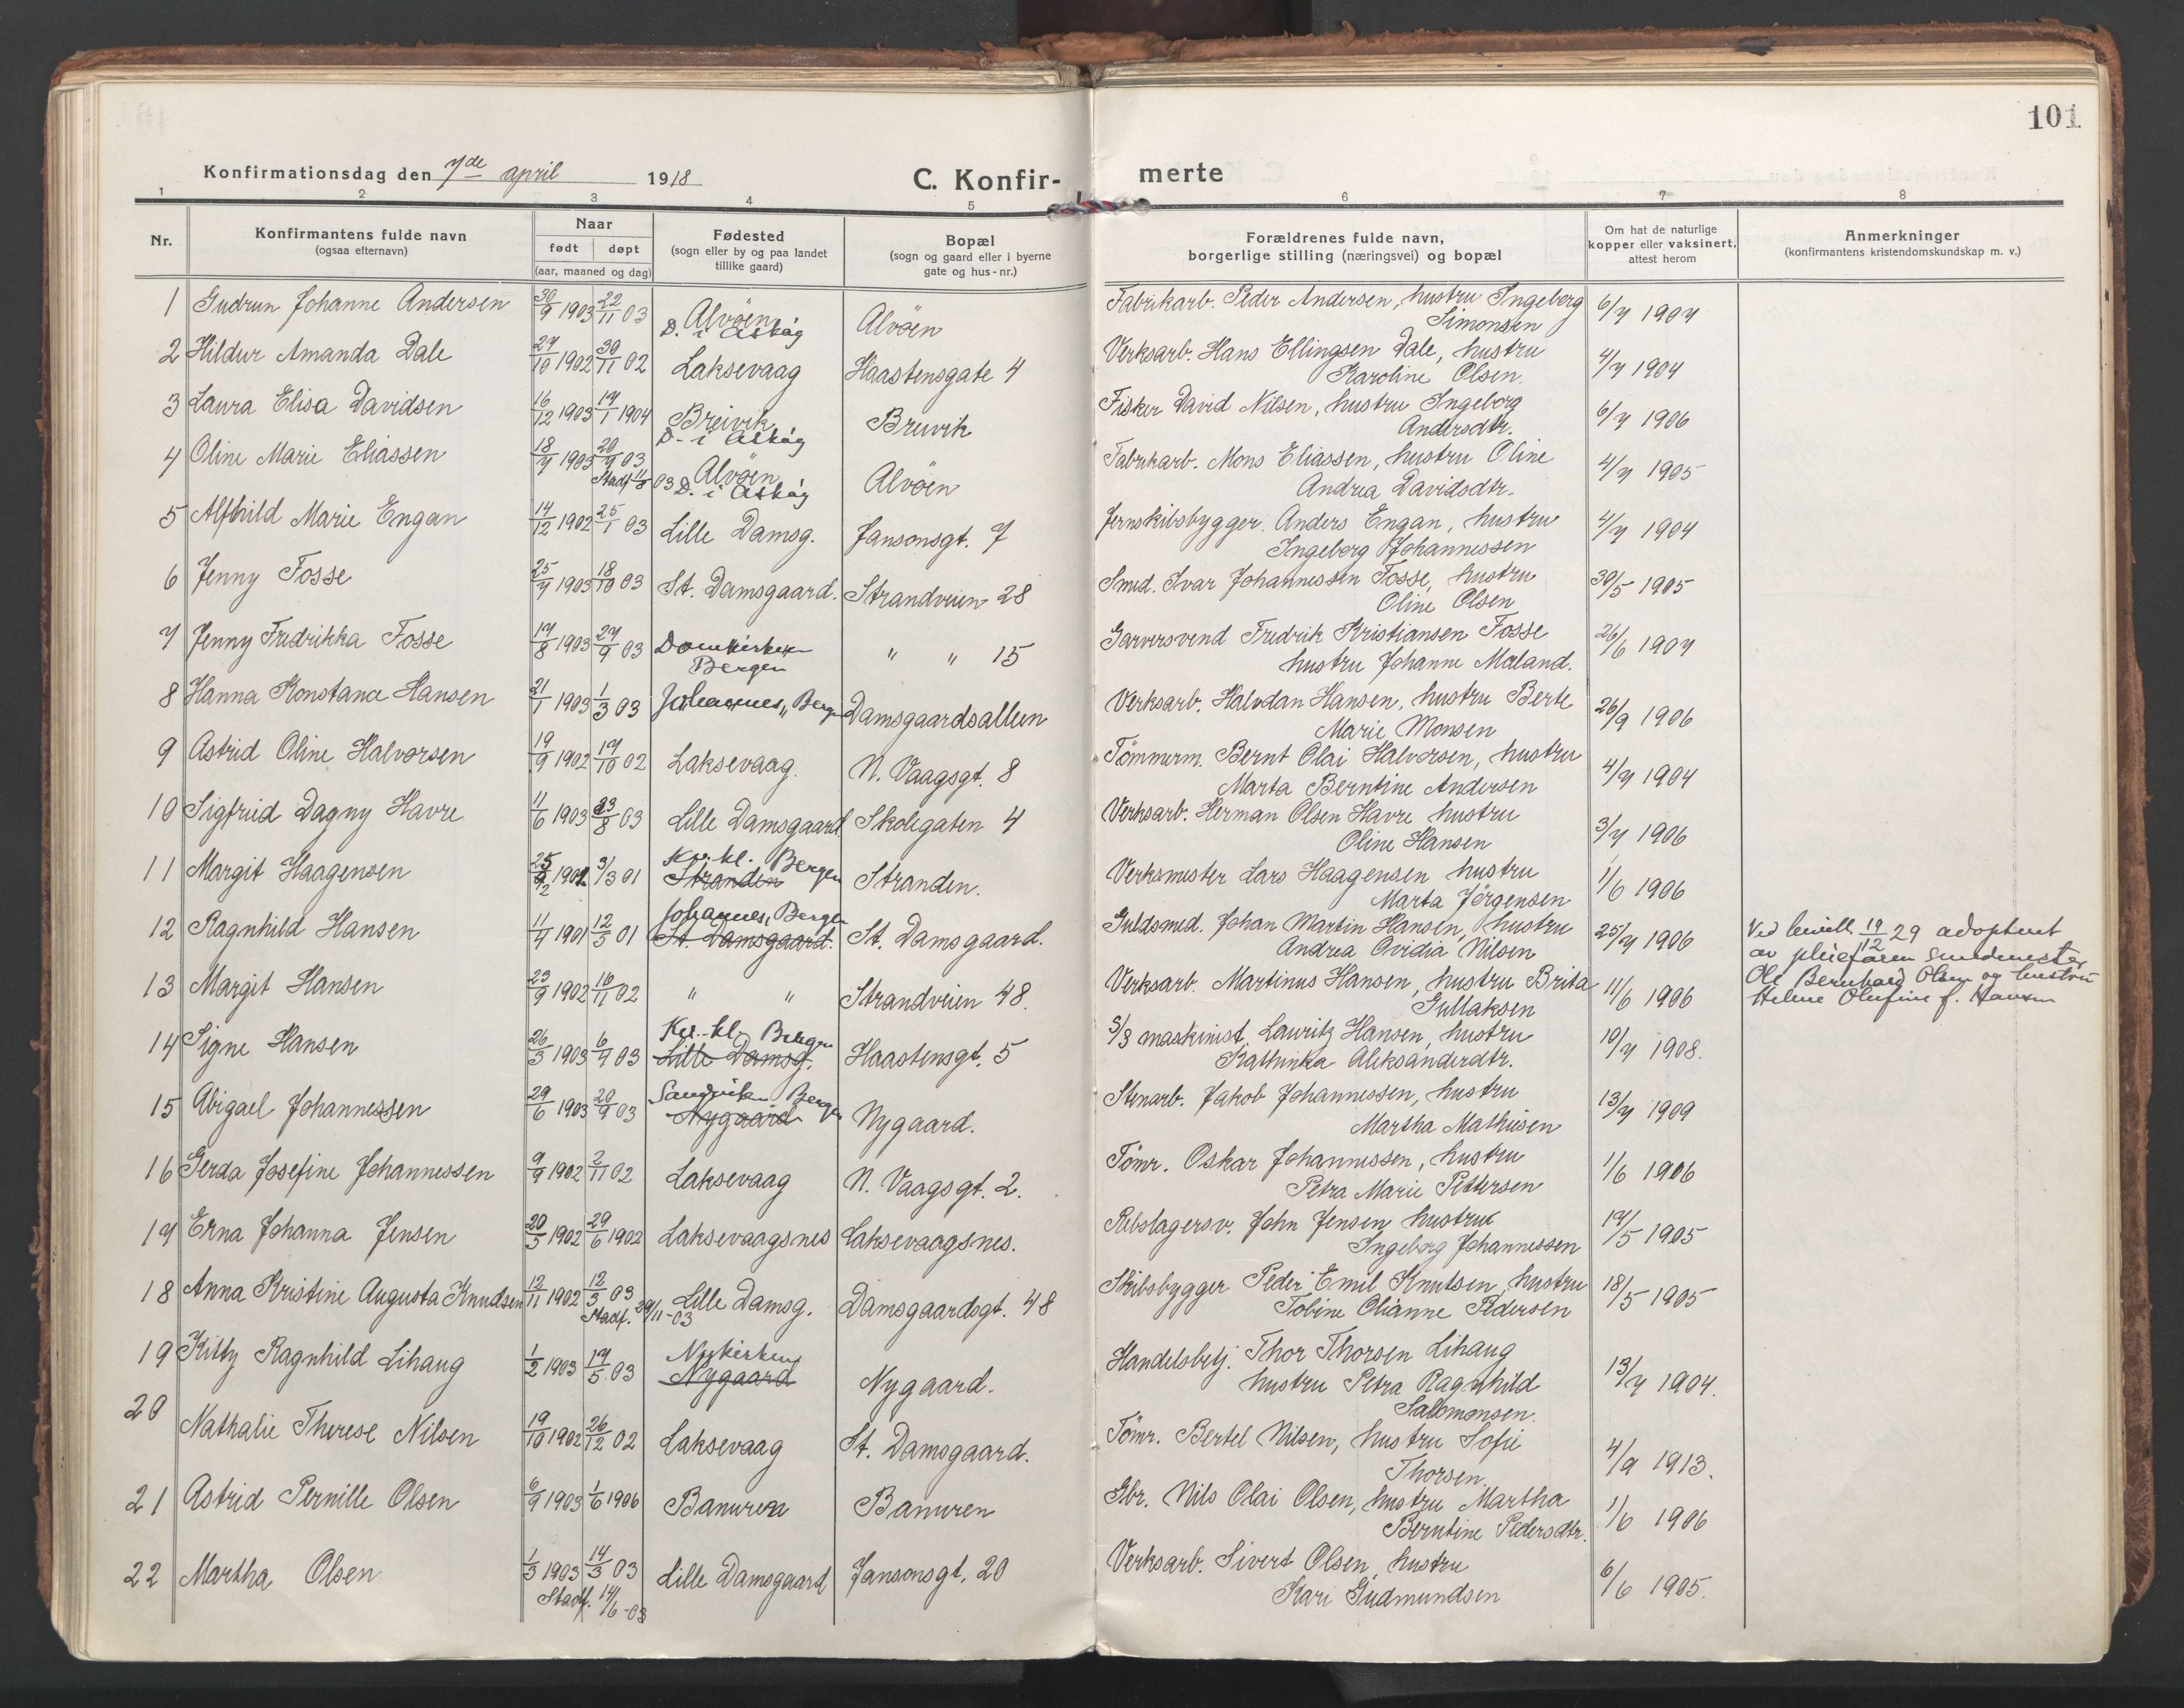 101
Konfirmationsdag den 7de april 1918
C. Konfir- merte
1 2 3 4 5 6 7 8
Nr.
Konfirmantens fulde navn
(ogsaa efternavn)
Naar
født døpt
(aar, maaned og dag)
Fødested
(sogn eller by og paa landet
tillike gaard)
Bopæl
(sogn og gaard eller i byerne
gate og hus-nr.)
Forældrenes fulde navn,
borgerlige stilling (næringsvei) og bopæl
Om hat de naturlige
kopper eller vaksinert,
attest herom
Anmerkninger
(konfirmantens kristendomskundskap m. v.)
1 Gudrun Johanne Andersen 30/9 1903 22/11 03 Alvøen Alvøen Fabrikarb. Peder Andersen, hustru Ingeborg 6/7 1907
D. i Askøy Simonsen
2 Hildur Amanda Dale 27/10 1902 30/11 02 Laksevaag Haastensgate 4 Verksarb. Hans Ellingsen Dale, hustru 4/7 1904
Karoline Olsen.
3 Laura Elisa Davidsen 16/12 1903 17/1 1904 Breivik Breivik Fisker David Nilsen, hustru Ingeborg 6/7 1906
D. i Askøy Andersdtr.
4 Oline Marie Eliassen 18/7 1903 20/9 03 Alvøen Alvøen Fabrikarb. Mons Eliassen, hustru Oline 4/7 1905
Stadf. 03 D. i Askøy Andrea Davidsdtr.
5 Alfhild Marie Engan 14/12 1902 25/1 03 Lille Damsg. Jansonsgt. 7 Jernskibsbygger Anders Engan, hustru 4/7 1904
Ingeborg Johannessen
6 Jenny Fosse 25/7 1903 18/10 03 St. Damsgaard. Strandveien 28 Smed. Ivar Johannessen Fosse, hustru 30/5 1905
Oline Olsen
7 Jenny Fredrikka Fosse 17/8 1903 27/9 03 Domkirken " " 15 Garversvend Fredrik Kristiansen Fosse 26/6 1907
Bergen hustru Johanne Mæland.
8 Hanna Konstanse Hansen 21/1 1903 1/3 03 Johannes, Bergen Damsgaardsalleen Verksarb. Halvdan Hansen, hustru Berte 26/9 1906
Marie Monsen
9 Astrid Oline Halvorsen 19/9 1902 17/10 02 Laksevaag. N. Vaagsgt. 8 Tømmerm. Bernt Olai Halvorsen, hustru 4/7 1904
Marta Berntine Andersen
10 Sigfried Dagny Havre 11/6 1903 23/8 03 Lille Damsgaard Skolegaten 4 Verksarb. Herman Olsen Havre hustru 3/7 1906
Oline Hansen
11 Margit Haagensen 1902 3/3 01 Kr. kl. Bergen Stranden Stranden. Verksmester Lars Haagensen hustru 1/6 1906
Marta Jørgensen
12 Ragnhild Hansen 11/4 1901 12/5 01 Johannes, Bergen St. Damsgaard. St. Damsgaard. Guldsmed. Johan Martin Hansen, hustru 25/7 1906 Ved bevill. 19/12 29 adoptert
Andrea Ovidia Nilsen av pleiefaren smedmester
13 Margit Hansen 23/9 1902 16/11 02 " " Strandveien 48. Verksarb. Martinus Hansen, hustru Brita 11/6 1906 Ole Bernhard Olsen og hustru
Gullaksen Helene Olufine f. Hansen
14 Signe Hansen 26/3 1903 6/9 03 Kr. kl. Bergen Lille Damsg. Haastensgt. 5 S/S maskinist Lauritz Hansen, hustru 19/7 1908.
Kathinka Aleksanderdtr.
15 Abigael Johannessen 29/6 1903 20/9 03 Sandviken Bergen Nygaard Nygaard. Stenarb. Jakob Johannessen, hustru 13/7 1909
Martha Mathisen
16 Gerda Josefine Johannessen 9/9 1902 2/11 02 Laksevaag N. Vaagsgt. 2. Tømr. Oskar Johannessen, hustru 1/6 1906
Petra Marie Pettersen
17 Erna Johanna Jensen 20/5 1902 29/6 1902 Laksevaagsnes Laksevaagsnes. Rebslagersv. John Jensen hustru 17/5 1905
Ingeborg Johannessen
18 Anna Kristine Augusta Knudsen 12/11 1902 12/3 03 Lille Damsg. Damsgaardsgt. 48 Skibsbygger Peder Emil Knutsen, hustru 18/5 1905
Stadf. 29/11-03 Tobine Olianne Pedersen
19 Kitty Ragnhild Lihaug 1/2 1903 17/5 03 Nykirken Nygaard Nygaard. Handelsbetj. Thor Thorsen Lihaug 13/7 1904.
hustru Petra Ragnhild
Salomonsen.
20 Nathalie Therese Nilsen 19/10 1902 26/12 02 Laksevaag St. Damsgaard. Tømr. Bertel Nilsen, hustru Sofie 4/9 1913.
Thorsen.
21 Astrid Pernille Olsen 6/9 1903 1/6 1906 Banuren Banuren Gbr. Nils Olai Olsen, hustru Martha 1/6 1906
Berntine Pedersdtr.
22 Martha Olsen 1/3 1903 14/3 03 Lille Damsgaard Jansonsgt. 20 Verksarb. Sivert Olsen, hustru 6/6 1905.
Stadf. 14/6-03 Kari Gudmundsen